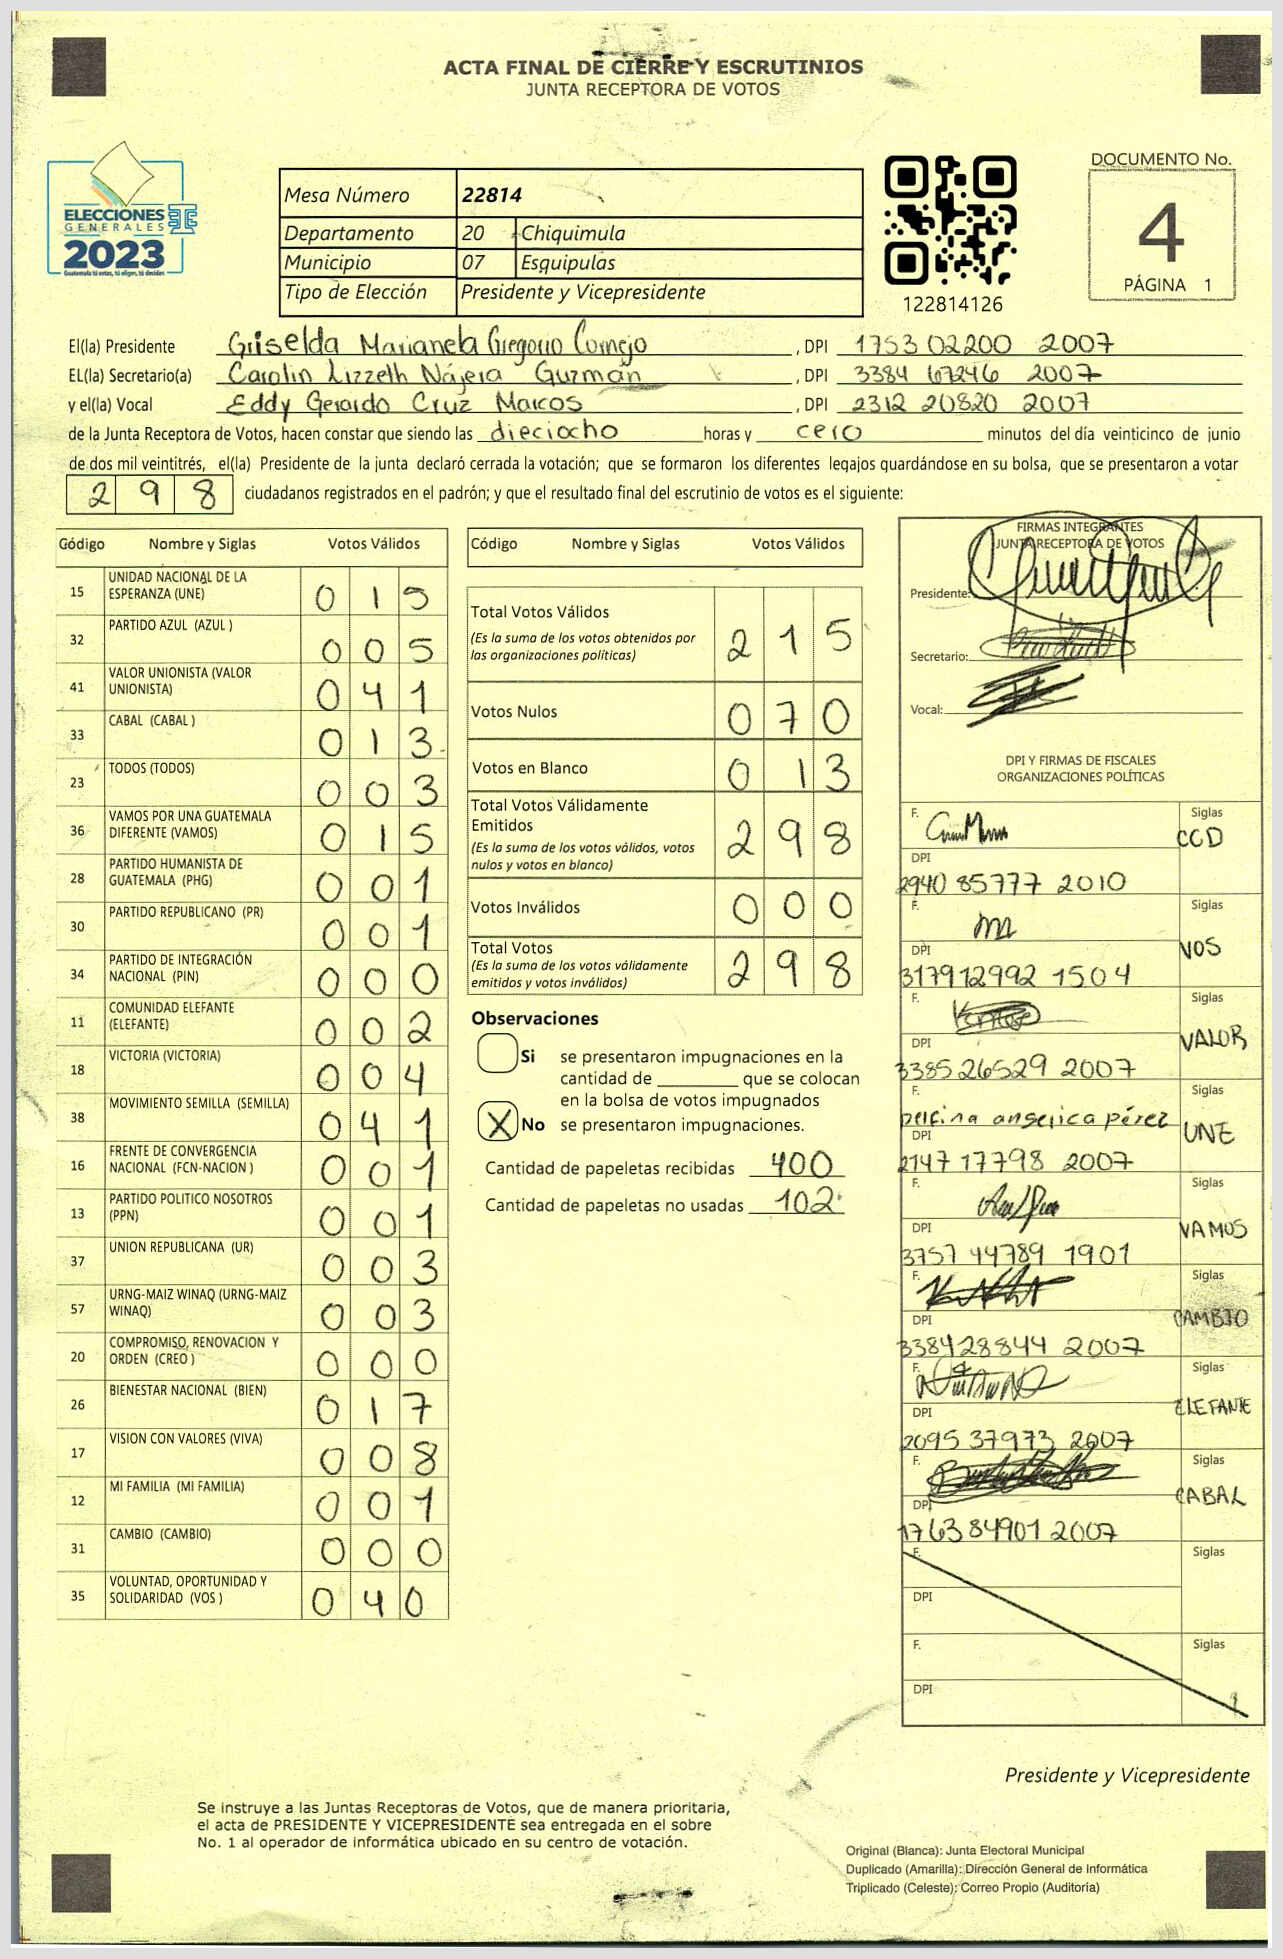 ACTA FINAL DE CIERRE Y ESCRUTINIOS
JUNTA RECEPTORA DE VOTOS
ELECCIONES
GENERALES
2023
Guatemala tú votas, tú eliges, tú decides
Mesa Número 22814
Departamento 20 Chiquimula
Municipio 07 Esquipulas
Tipo de Elección Presidente y Vicepresidente
122814126
DOCUMENTO No.
4
PÁGINA 1
El(la) Presidente Griselda Marianela Gregorio Cornejo, DPI 1753 02200 2007
EL(la) Secretario(a) Carolin Lizzeth Nájera Guzmán, DPI 3384 67246 2007
y el(la) Vocal Eddy Gerardo Cruz Marcos, DPI 2312 20820 2007
de la Junta Receptora de Votos, hacen constar que siendo las dieciocho horas y cero minutos del día veinticinco de junio
de dos mil veintitrés, el(la) Presidente de la junta declaró cerrada la votación; que se formaron los diferentes legajos guardándose en su bolsa, que se presentaron a votar
298 ciudadanos registrados en el padrón; y que el resultado final del escrutinio de votos es el siguiente:
Código Nombre y Siglas Votos Válidos
15 UNIDAD NACIONAL DE LA ESPERANZA (UNE) 015
32 PARTIDO AZUL (AZUL ) 005
41 VALOR UNIONISTA (VALOR UNIONISTA) 041
33 CABAL (CABAL ) 013
23 TODOS (TODOS) 003
36 VAMOS POR UNA GUATEMALA DIFERENTE (VAMOS) 015
28 PARTIDO HUMANISTA DE GUATEMALA (PHG) 001
30 PARTIDO REPUBLICANO (PR) 001
34 PARTIDO DE INTEGRACIÓN NACIONAL (PIN) 000
11 COMUNIDAD ELEFANTE (ELEFANTE) 002
18 VICTORIA (VICTORIA) 004
38 MOVIMIENTO SEMILLA (SEMILLA) 041
16 FRENTE DE CONVERGENCIA NACIONAL (FCN-NACION ) 001
13 PARTIDO POLITICO NOSOTROS (PPN) 001
37 UNION REPUBLICANA (UR) 003
57 URNG-MAIZ WINAQ (URNG-MAIZ WINAQ) 003
20 COMPROMISO, RENOVACION Y ORDEN (CREO ) 000
26 BIENESTAR NACIONAL (BIEN) 017
17 VISION CON VALORES (VIVA) 008
12 MI FAMILIA (MI FAMILIA) 001
31 CAMBIO (CAMBIO) 000
35 VOLUNTAD, OPORTUNIDAD Y SOLIDARIDAD (VOS ) 040
Código Nombre y Siglas Votos Válidos
Total Votos Válidos 215
(Es la suma de los votos obtenidos por
las organizaciones políticas)
Votos Nulos 070
Votos en Blanco 013
Total Votos Válidamente
Emitidos 298
(Es la suma de los votos válidos, votos
nulos y votos en blanco)
Votos Inválidos 000
Total Votos 298
(Es la suma de los votos válidamente
emitidos y votos inválidos)
Observaciones
Si se presentaron impugnaciones en la
cantidad de ________ que se colocan
en la bolsa de votos impugnados
X No se presentaron impugnaciones.
Cantidad de papeletas recibidas 400
Cantidad de papeletas no usadas 102
FIRMAS INTEGRANTES
JUNTA RECEPTORA DE VOTOS
Presidente:
Secretario:
Vocal:
DPI Y FIRMAS DE FISCALES
ORGANIZACIONES POLÍTICAS
F. Siglas
CCD
DPI
2940 85777 2010
F. Siglas
VOS
DPI
317912992 1504
F. Siglas
VALOR
DPI
3385 26529 2007
F. Siglas
Delfina angelica pérez UNE
DPI
2147 17798 2007
F. Siglas
VAMOS
DPI
3757 44789 1901
F. Siglas
CAMBIO
DPI
338428844 2007
F. Siglas
ELEFANTE
DPI
2095 37973 2007
F. Siglas
CABAL
DPI
1763 84901 2007
F. Siglas
DPI
F. Siglas
DPI
Presidente y Vicepresidente
Se instruye a las Juntas Receptoras de Votos, que de manera prioritaria,
el acta de PRESIDENTE Y VICEPRESIDENTE sea entregada en el sobre
No. 1 al operador de informática ubicado en su centro de votación.
Original (Blanca): Junta Electoral Municipal
Duplicado (Amarilla): Dirección General de Informática
Triplicado (Celeste): Correo Propio (Auditoría)